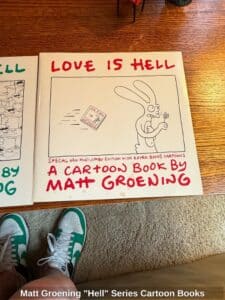 LOVE IS HELL
SPECIAL
EDITION WITH EXTRA BONUS CARTOONS
A CARTOON BOOK BY
MATT GROENING
ELL
BY
OG
Matt Groening "Hell" Series Cartoon Books